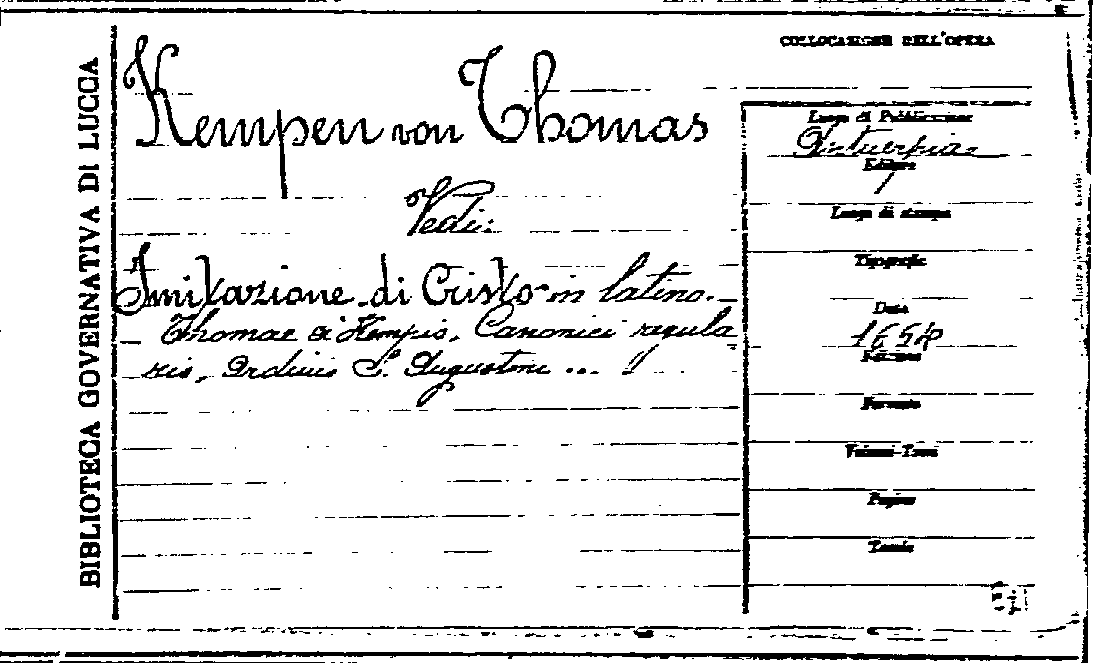 BIBLIOTECA GOVERNATIVA DI LUCCA
COLLOCAZIONE DELL'OPERA
Kempen von Thomas
Vedi:
Imitazione di Cristo in latino.
Thomae a Kempis, Canonici regula
ris, Ordinis S. Augustini ...
Luogo di Pubblicazione
Antuerpiae
Editore
Luogo di stampa
Tipografia
Data
Edizione
Formato
Volumi-Tomi
Pagine
Tavole